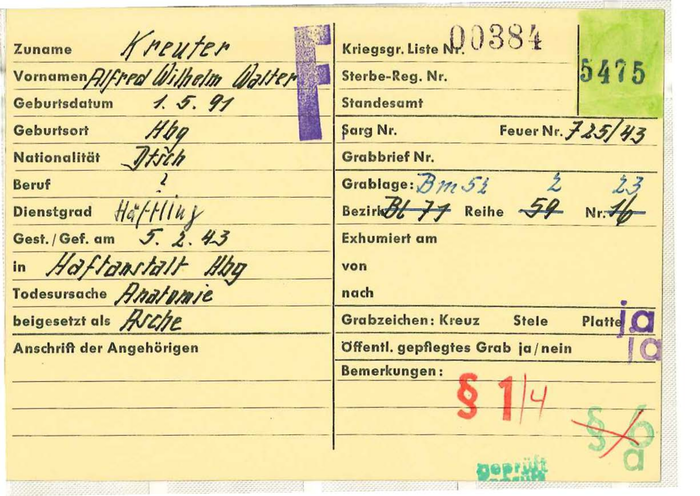 Zuname Kreuter
Vornamen Alfred Wilhelm Walter
Geburtsdatum 1. 5. 91
Geburtsort Hbg
Nationalität Dtsch
Beruf ?
Dienstgrad Häftling
Gest./Gef. am 5. 2. 43
in Haftanstalt Hbg
Todesursache Anatomie
beigesetzt als Asche
Anschrift der Angehörigen
F
Kriegsgr. Liste Nr. 00384
5475
Sterbe-Reg. Nr.
Standesamt
Sarg Nr. Feuer Nr. 725/43
Grabbrief Nr.
Grablage: Bm 52 2 23
Bezirk Bl 71 Reihe 59 Nr. 16
Exhumiert am
von
nach
Grabzeichen: Kreuz Stele Platte ja
Öffentl. gepflegtes Grab ja/nein ja
Bemerkungen:
§ 1/4
§ 6
a
geprüft